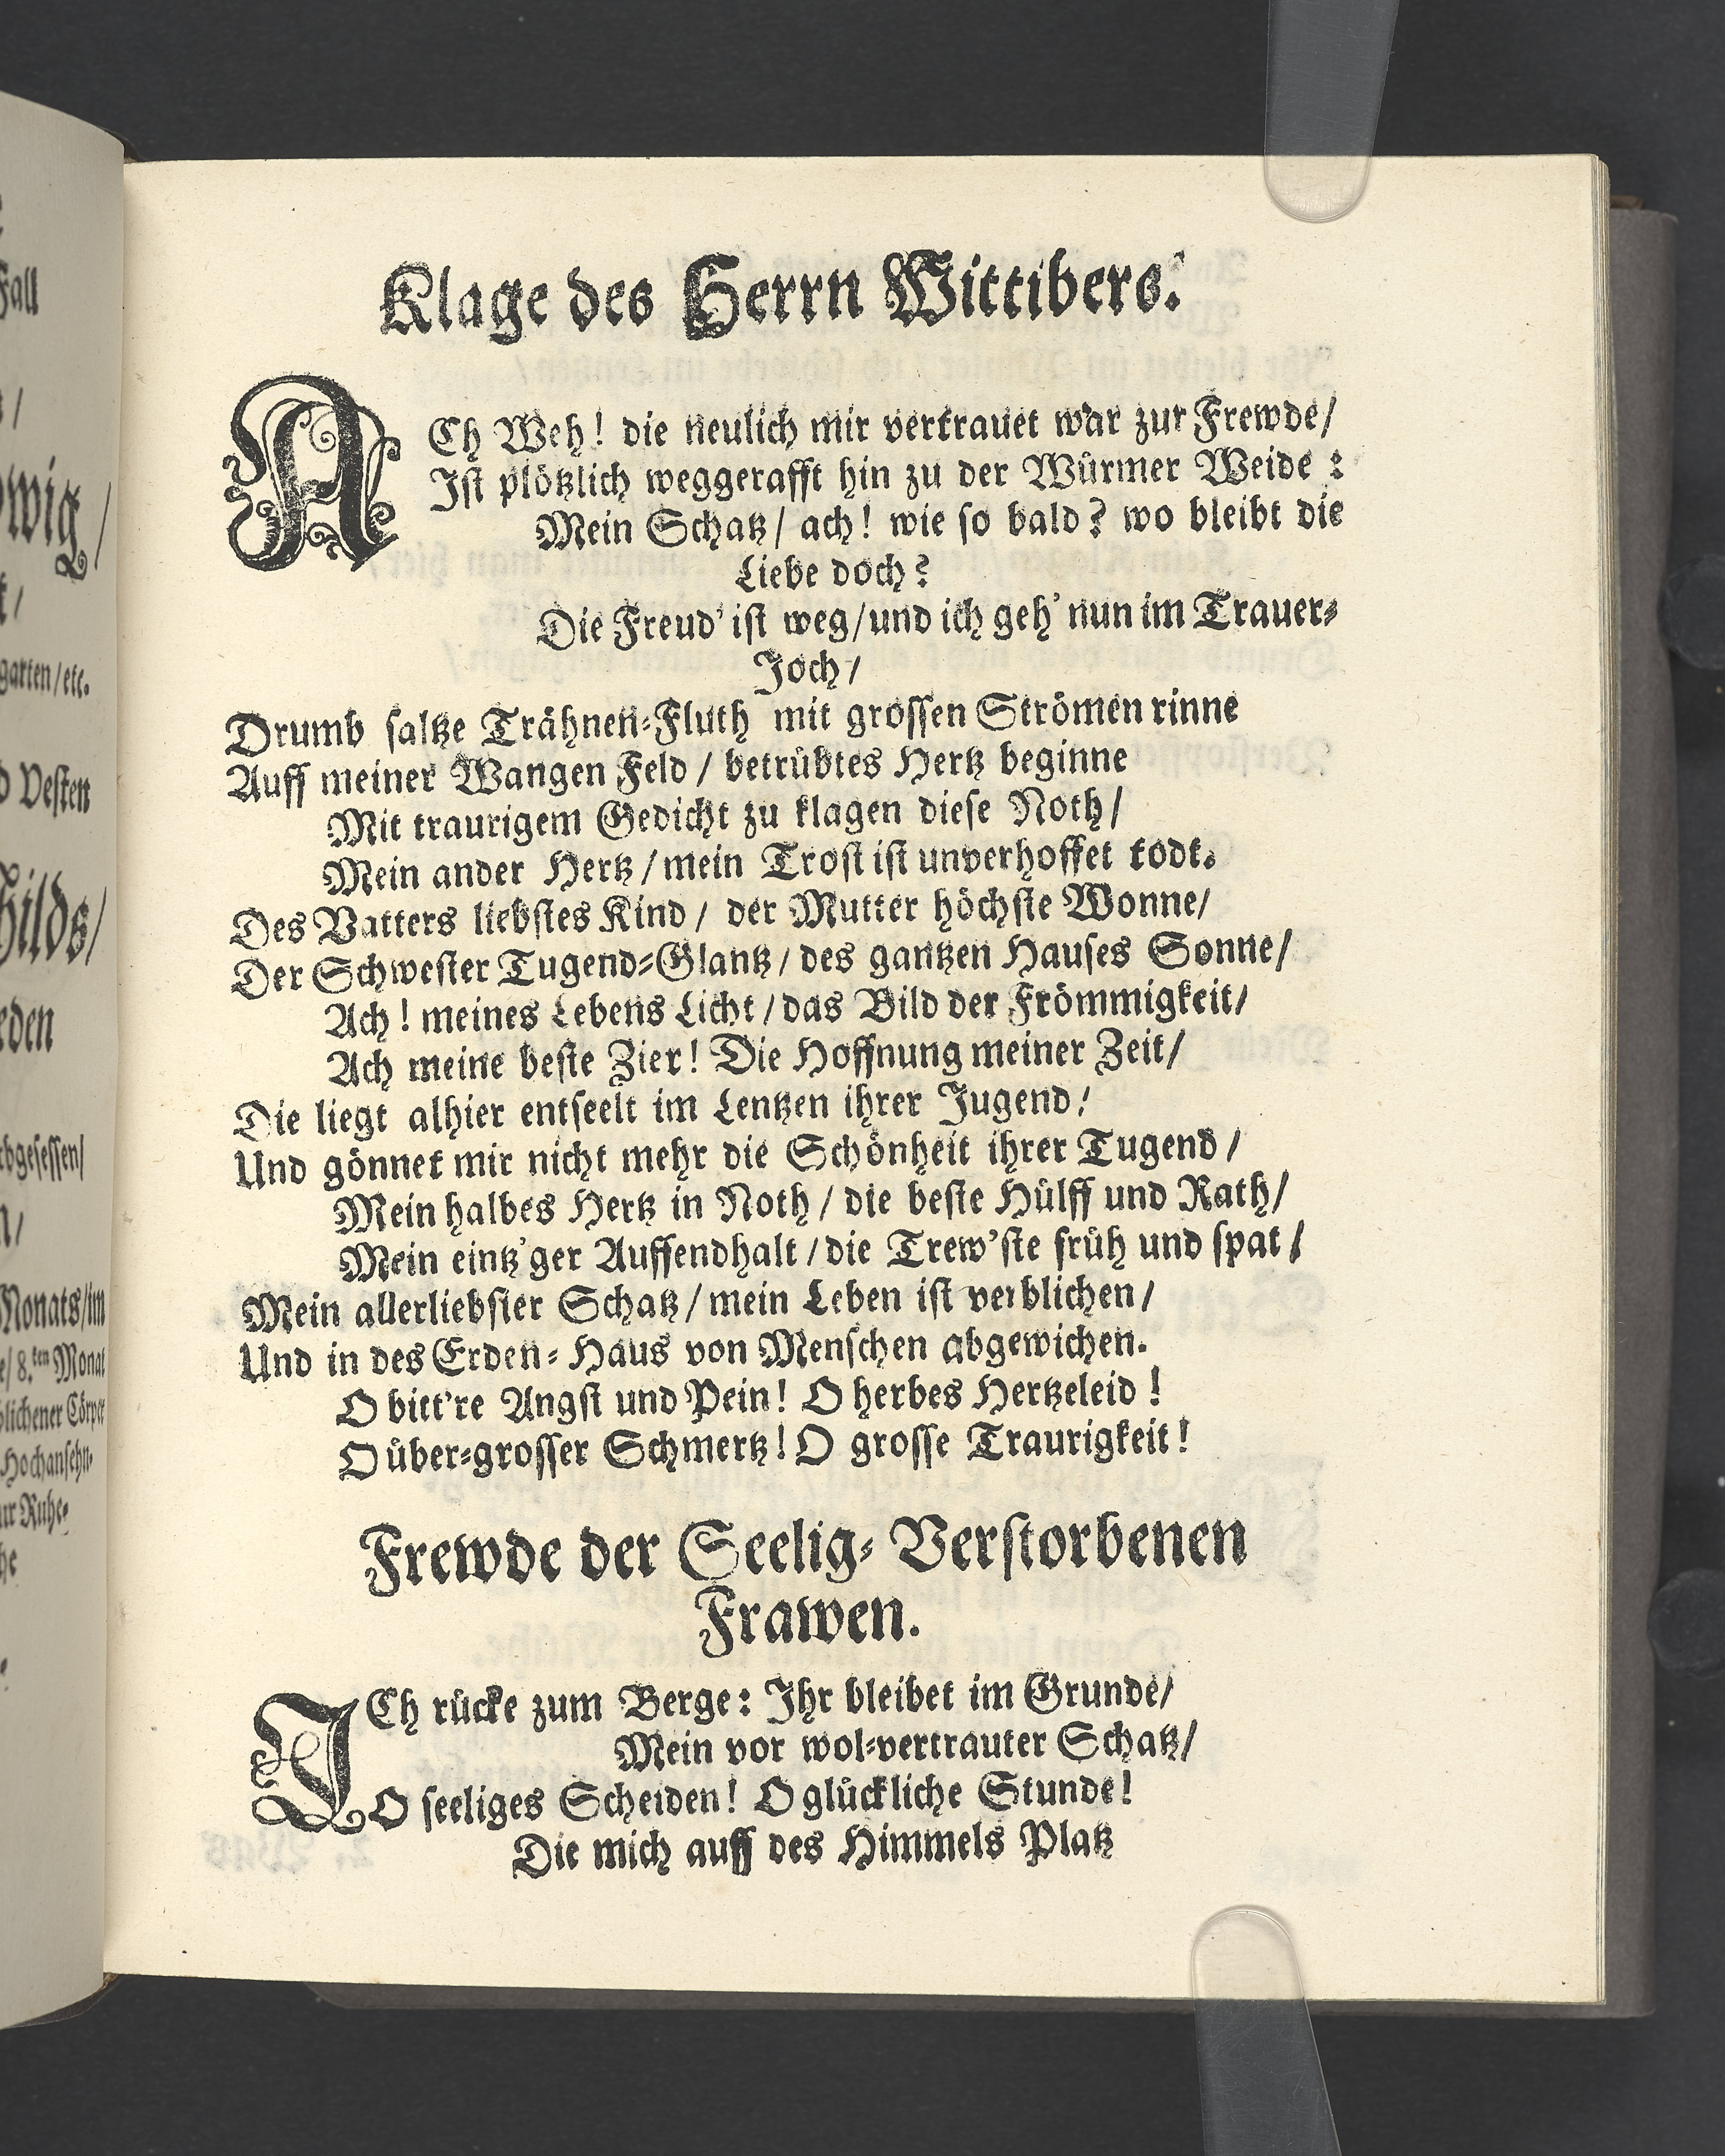 Fall
/
wig/
/
garten/etc.
Vesten
hilds/
eden
rbgesessen/
/
Monats/im
8.ten Monat
blichener Cörper
Hochansehn-
ur Ruhe-
Klage des Herrn Wittibers.
ACh Weh! die neulich mir vertrauet war zur Frewde/
Ist plötzlich weggerafft hin zu der Würmer Weide:
Mein Schatz/ ach! wie so bald? wo bleibt die
Liebe doch?
Die Freud' ist weg/und ich geh' nun im Trauer-
Joch/
Drumb saltze Trähnen-Fluth mit grossen Strömen rinne
Auff meiner Wangen Feld/ betrübtes Hertz beginne
Mit traurigem Gedicht zu klagen diese Noth/
Mein ander Hertz/mein Trost ist unverhoffet todt.
Des Vatters liebstes Kind/ der Mutter höchste Wonne/
Der Schwester Tugend-Glantz/ des gantzen Hauses Sonne/
Ach! meines Lebens Licht/das Bild der Frömmigkeit/
Ach meine beste Zier! Die Hoffnung meiner Zeit/
Die liegt alhier entseelt im Lentzen ihrer Jugend/
Und gönnet mir nicht mehr die Schönheit ihrer Tugend/
Mein halbes Hertz in Noth/ die beste Hülff und Rath/
Mein eintz'ger Auffendhalt/die Trew'ste früh und spat/
Mein allerliebster Schatz/mein Leben ist verblichen/
Und in des Erden-Haus von Menschen abgewichen.
O bitt're Angst und Pein! O herbes Hertzeleid!
O über-grosser Schmertz! O grosse Traurigkeit!
Frewde der Seelig-Verstorbenen
Frawen.
ICh rücke zum Berge: Ihr bleibet im Grunde/
Mein vor wol-vertrauter Schatz/
O seeliges Scheiden! O glückliche Stunde!
Die mich auff des Himmels Platz